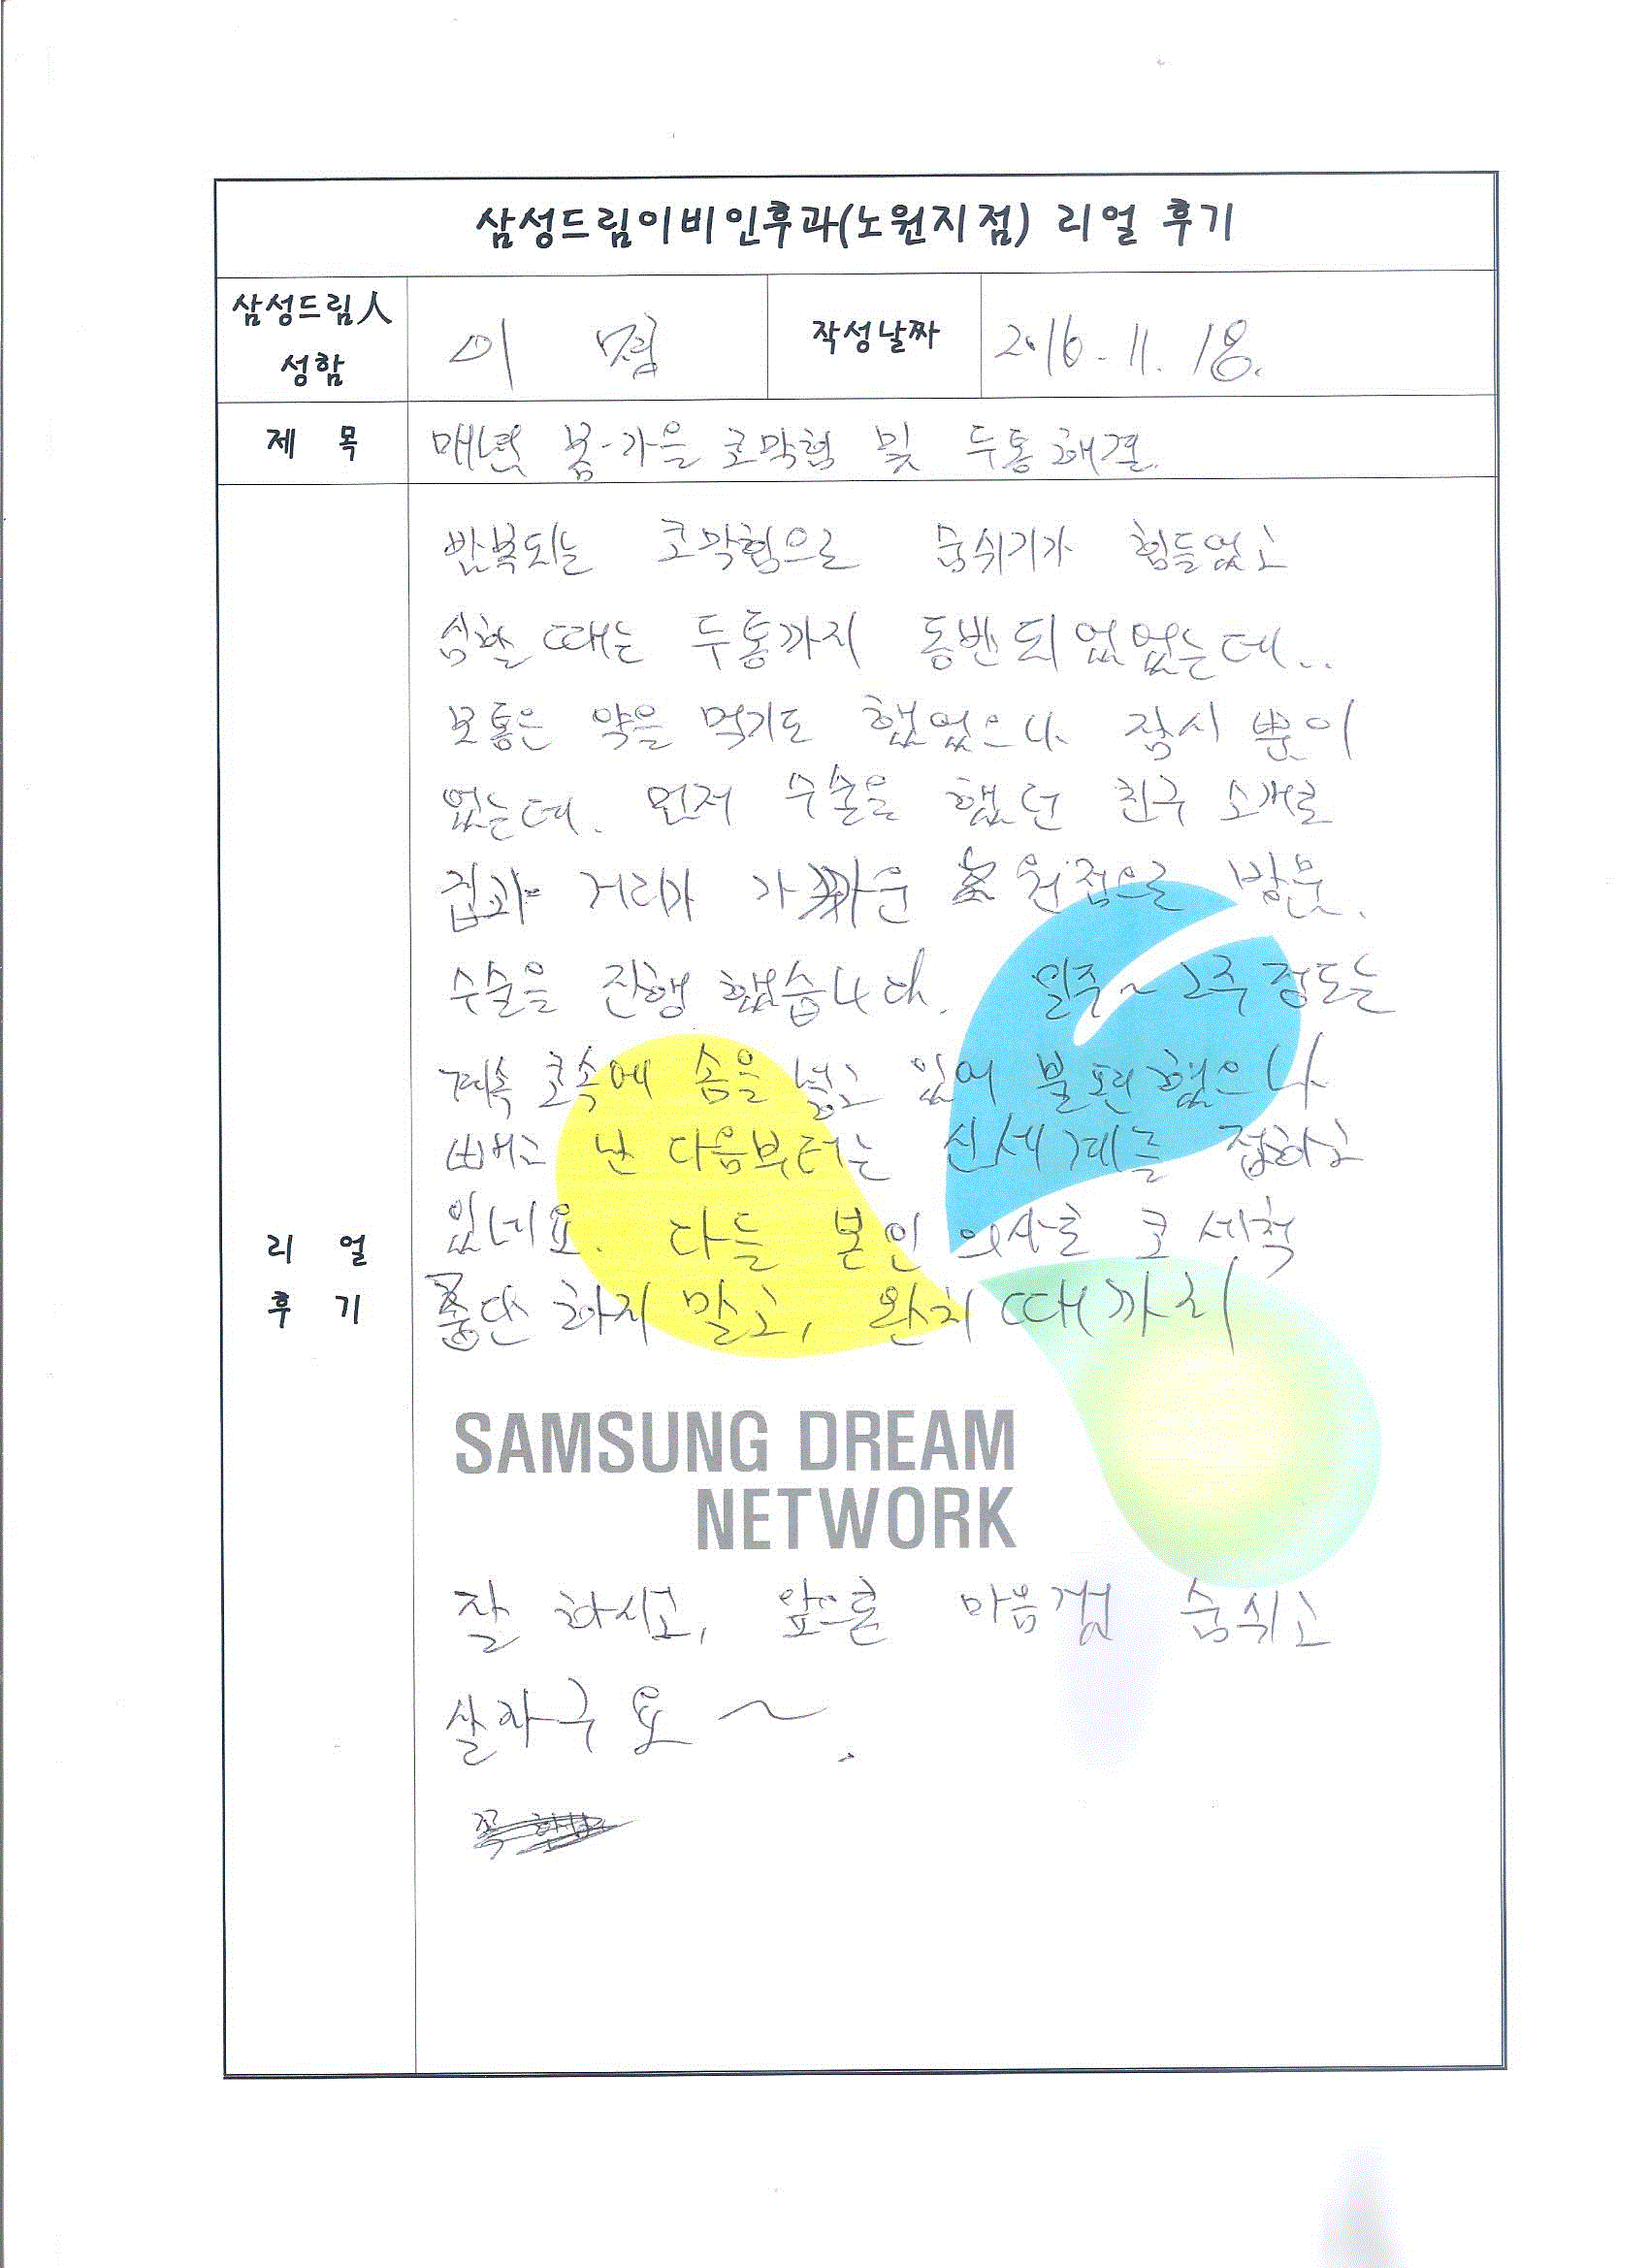 삼성드림이비인후과(노원지점) 리얼 후기
삼성드림人
성함
이
작성날짜
2016. 11. 18.
제 목
매년 봄·가을 코막힘 및 두통 해결.
반복되는 코막힘으로 숨쉬기가 힘들었고
심할 때는 두통까지 동반되었었는데..
보통은 약을 먹기도 했었으나 잠시 뿐이
었는데. 먼저 수술을 했던 친구 소개로
집과 거리가 가까운 노원점으로 방문.
수술을 진행 했습니다. 일주~2주 정도는
계속 코속에 솜을 넣고 있어 불편했으나
빼고 난 다음부터는 신세계를 접하고
있네요. 다들 본인 의사로 코 세척
중단 하지 말고, 완치 때까지
리 얼
후 기
SAMSUNG DREAM
NETWORK
잘 하시고, 앞으론 마음껏 숨쉬고
살자구요~.